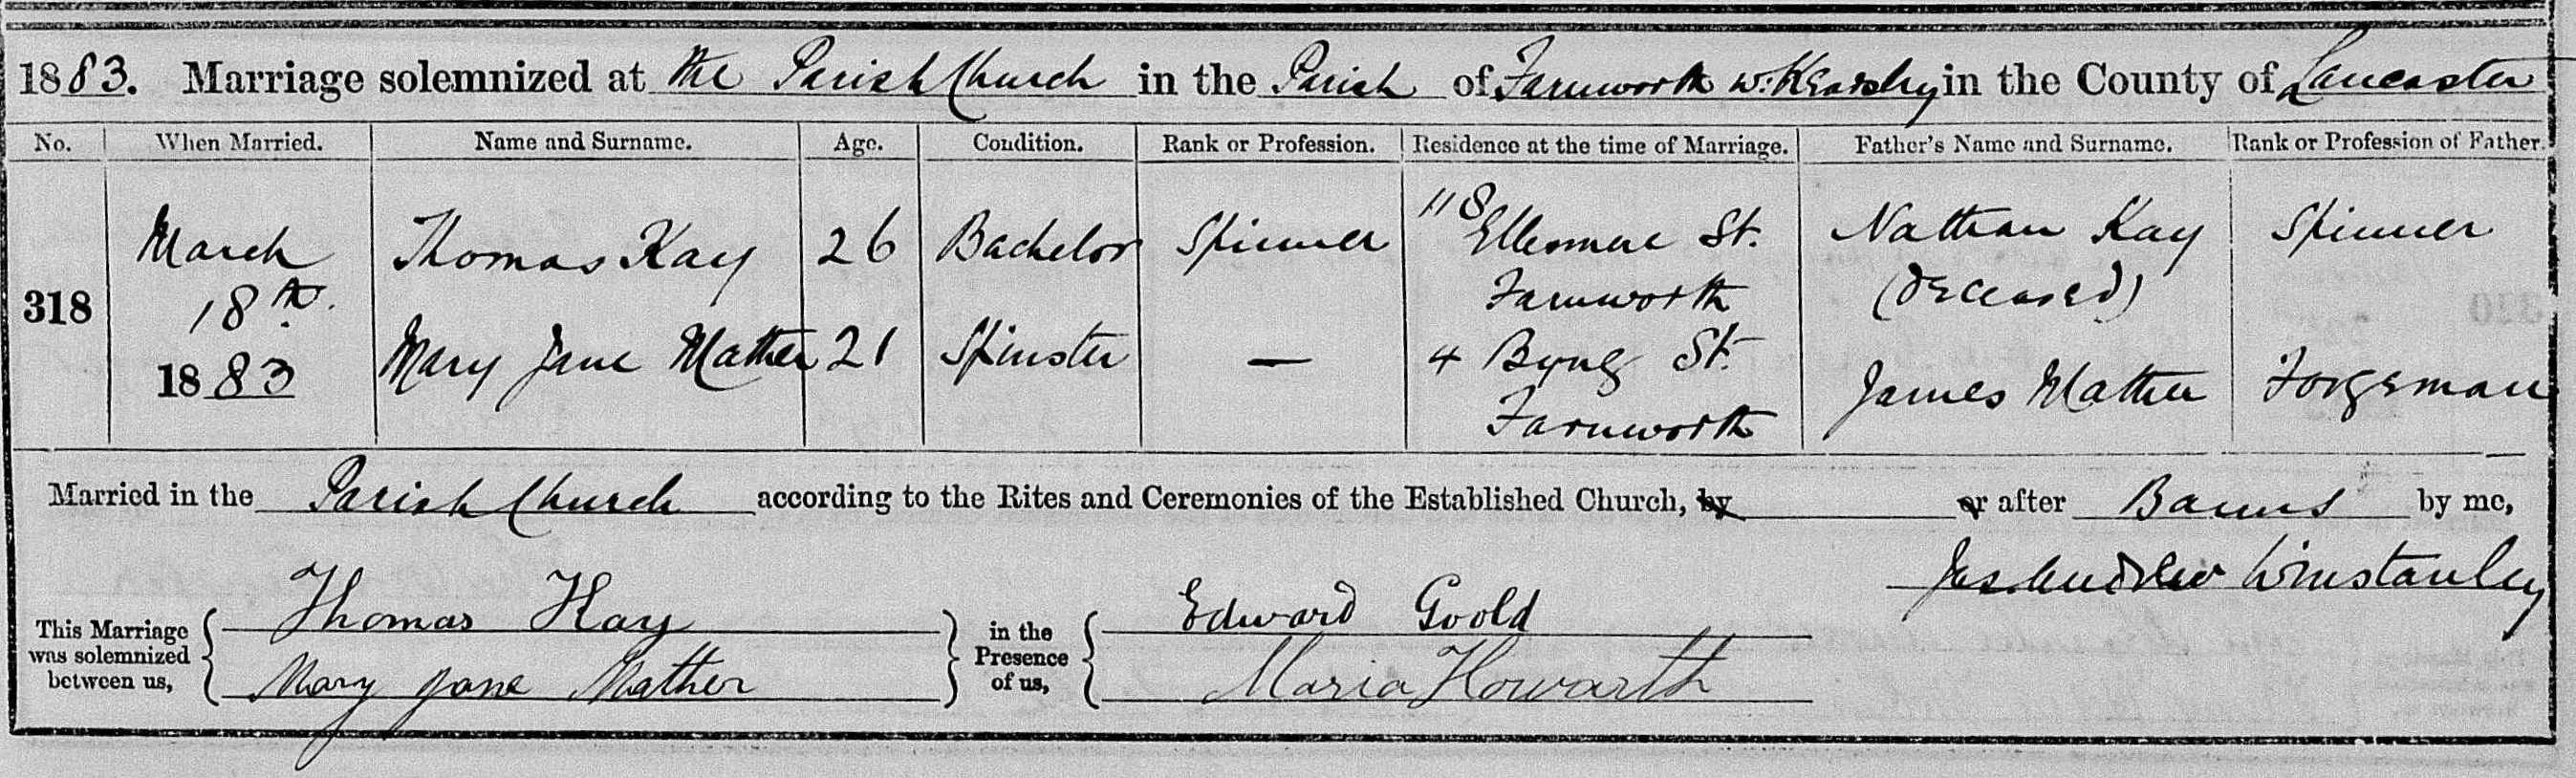 1883. Marriage solemnized at the Parish Church in the Parish of Farnworth w. Kearsley in the County of Lancaster
No. When Married. Name and Surname. Age. Condition. Rank or Profession. Residence at the time of Marriage. Father's Name and Surname. Rank or Profession of Father.
318 March 18th. 1883
Thomas Kay 26 Bachelor Spinner 118 Ellesmere St. Farnworth Nathan Kay (deceased) Spinner
Mary Jane Mather 21 Spinster — 4 Byng St. Farnworth James Mather Forgeman
Married in the Parish Church according to the Rites and Ceremonies of the Established Church, by or after Banns by me,
Jas. Andrew Winstanley
This Marriage was solemnized between us, { Thomas Kay } in the Presence of us, { Edward Goold
Mary Jane Mather Maria Howarth